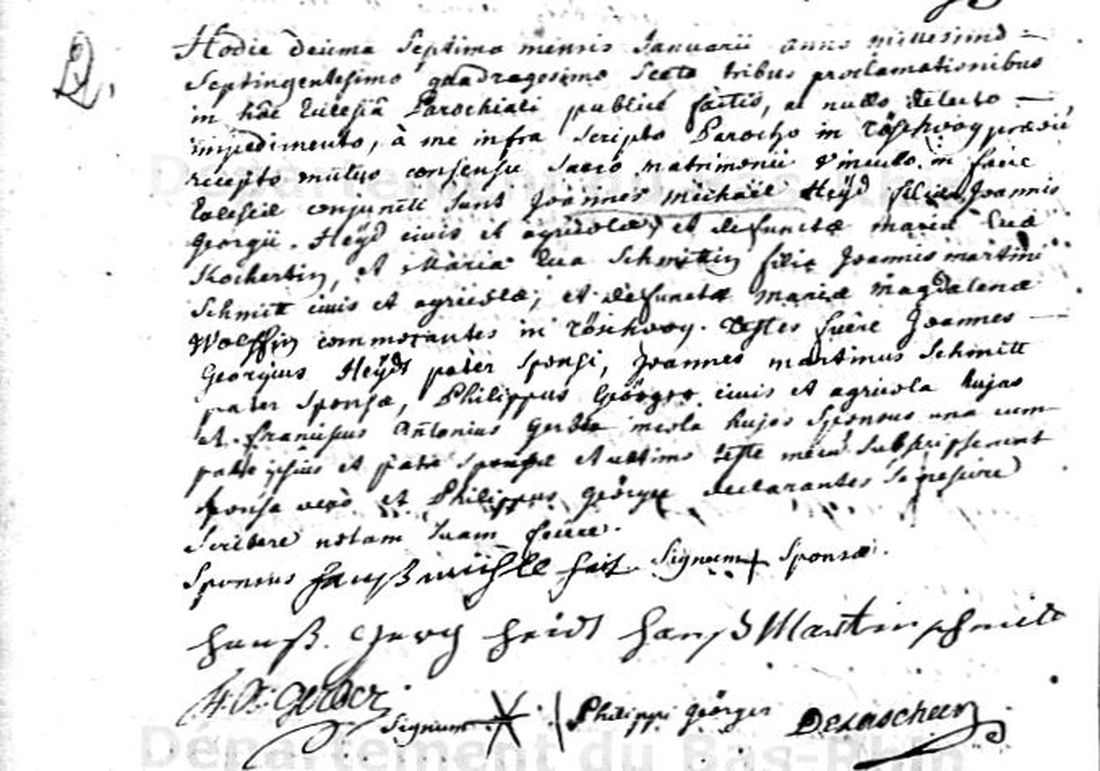 2.
Hodie decima Septima mensis Januarii anno millesimo
Septingentesimo quadragesimo Sexto tribus proclamationibus
in hac Ecclesia Parochiali publice factis, ac nullo detecto
impedimento, à me infra scripto Parocho in Röschwog
recepto mutuo consensu Sacro matrimonii vinculo in facie
Ecclesiæ conjuncti sunt Joannes Michaël Heÿd filius Joannis
Georgii Heÿd civis et agricolæ, et defunctæ mariæ Evæ
Kockertin, et Maria Eva Schmittin filia Joannis martini
Schmitt civis et agricolæ, et defunctæ mariæ magdalenæ
Wolffin commorantes in Röschwog. Testes fuêre Joannes
Georgius Heÿdt pater sponsi, Joannes martinus Schmitt
pater sponsæ, Philippus Görger civis et agricola hujas
et franciscus Antonius Gerber incola hujas Sponsus una cum
patre ipsius et patre sponsæ et ultimo teste mecum Subscripserunt
sponsa verò et Philippus Görger declarantes Se nescire
Scribere notam suam fecere.
Sponsus hanß Signum + Sponsæ.
hanß heidt hanß Martin schmidt
Signum Philippi Görger Delaschen
Département du Bas-Rhin